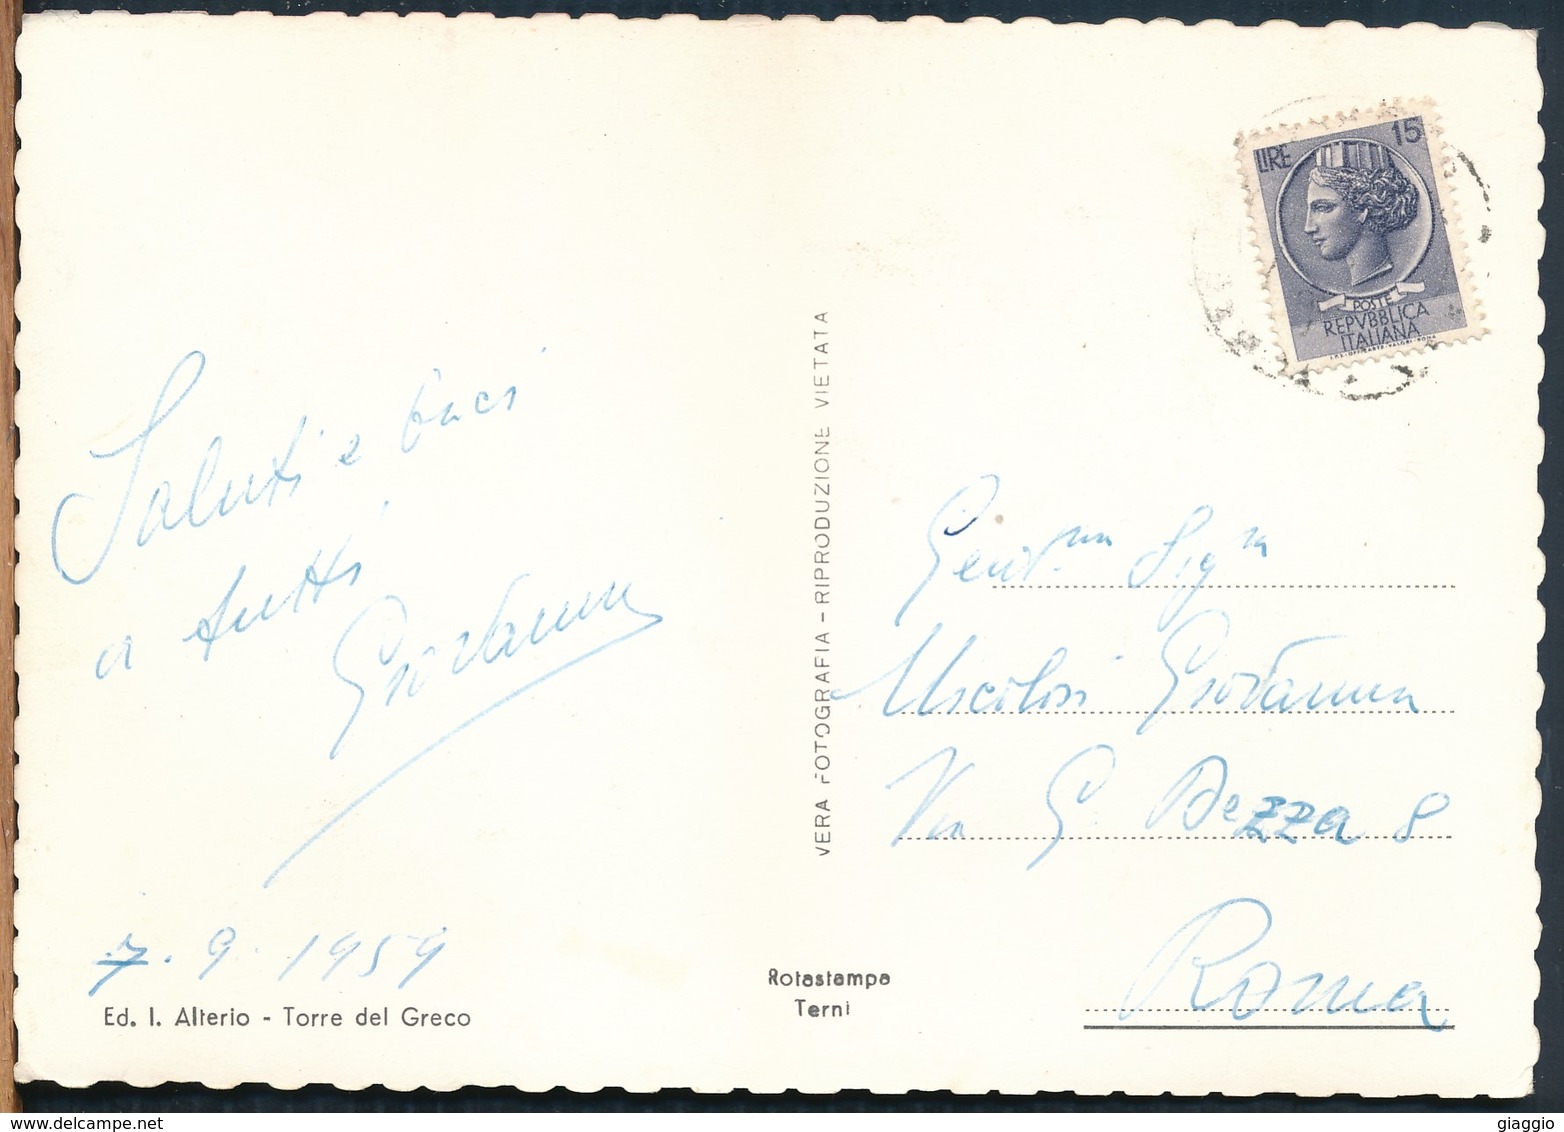 Saluti e baci
a tutti
Giovanni
7.9.1959
Ed. I. Alterio - Torre del Greco
VERA FOTOGRAFIA - RIPRODUZIONE VIETATA
Rotastampa
Terni
LIRE 15
POSTE
REPVBBLICA
ITALIANA
I.P.S.-OFF.CARTE-VALORI-ROMA
Gent.ma Sig.ra
Nicolosi Giovanna
Via G. Dezza 8
Roma
www.delcampe.net
giaggio